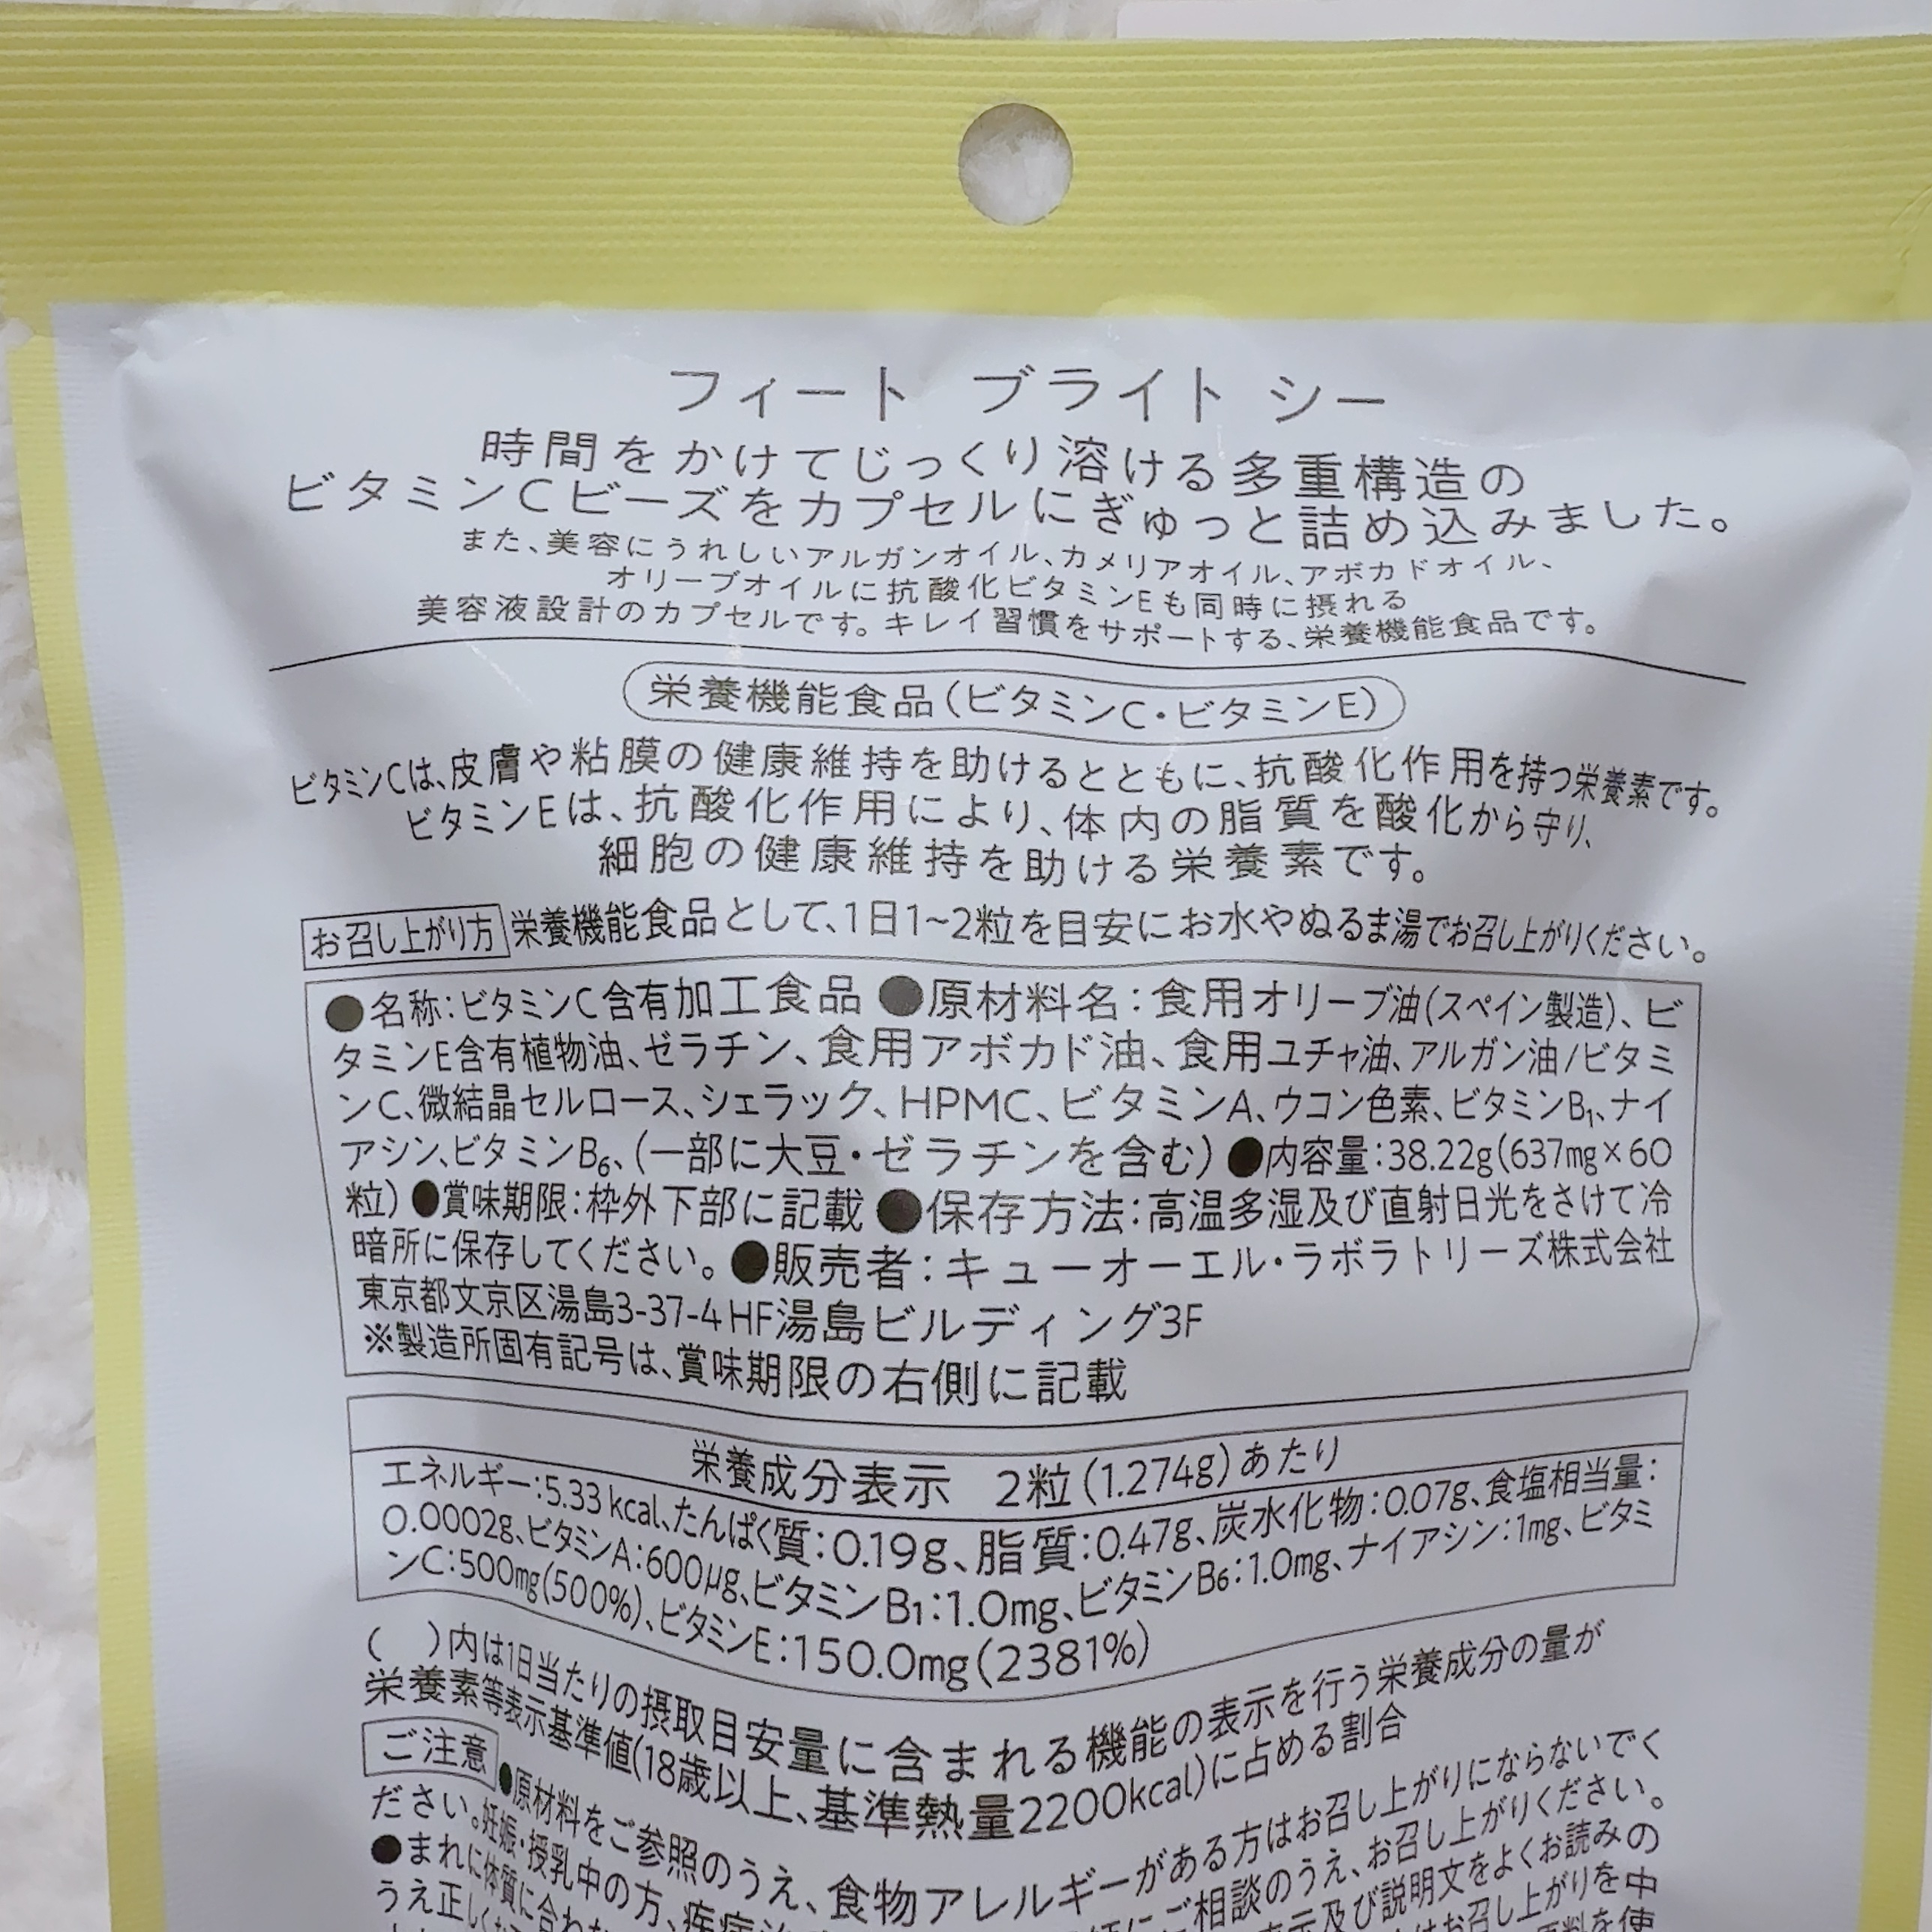 フィート ブライト シー
時間をかけてじっくり溶ける多重構造の
ビタミンCビーズをカプセルにぎゅっと詰め込みました。
また、美容にうれしいアルガンオイル、カメリアオイル、アボカドオイル、
オリーブオイルに抗酸化ビタミンEも同時に摂れる
美容液設計のカプセルです。キレイ習慣をサポートする、栄養機能食品です。
栄養機能食品(ビタミンC・ビタミンE)
ビタミンCは、皮膚や粘膜の健康維持を助けるとともに、抗酸化作用を持つ栄養素です。
ビタミンEは、抗酸化作用により、体内の脂質を酸化から守り、
細胞の健康維持を助ける栄養素です。
お召し上がり方 栄養機能食品として、1日1~2粒を目安にお水やぬるま湯でお召し上がりください。
●名称:ビタミンC含有加工食品 ●原材料名:食用オリーブ油(スペイン製造)、ビ
タミンE含有植物油、ゼラチン、食用アボカド油、食用ユチャ油、アルガン油/ビタミ
ンC、微結晶セルロース、シェラック、HPMC、ビタミンA、ウコン色素、ビタミンB₁、ナイ
アシン、ビタミンB₆、(一部に大豆・ゼラチンを含む) ●内容量:38.22g(637mg×60
粒) ●賞味期限:枠外下部に記載 ●保存方法:高温多湿及び直射日光をさけて冷
暗所に保存してください。●販売者:キューオーエル・ラボラトリーズ株式会社
東京都文京区湯島3-37-4 HF湯島ビルディング3F
※製造所固有記号は、賞味期限の右側に記載
栄養成分表示 2粒(1.274g)あたり
エネルギー:5.33kcal、たんぱく質:0.19g、脂質:0.47g、炭水化物:0.07g、食塩相当量:
0.0002g、ビタミンA:600μg、ビタミンB₁:1.0mg、ビタミンB₆:1.0mg、ナイアシン:1mg、ビタミ
ンC:500mg(500%)、ビタミンE:150.0mg(2381%)
( )内は1日当たりの摂取目安量に含まれる機能の表示を行う栄養成分の量が
栄養素等表示基準値(18歳以上、基準熱量2200kcal)に占める割合
ご注意 ●原材料をご参照のうえ、食物アレルギーがある方はお召し上がりにならないでく
ださい。妊娠・授乳中の方、疾病 にご相談のうえ、お召し上がりください。
●まれに体質に合わ 表示及び説明文をよくお読みの
うえ正しく お召し上がりを中